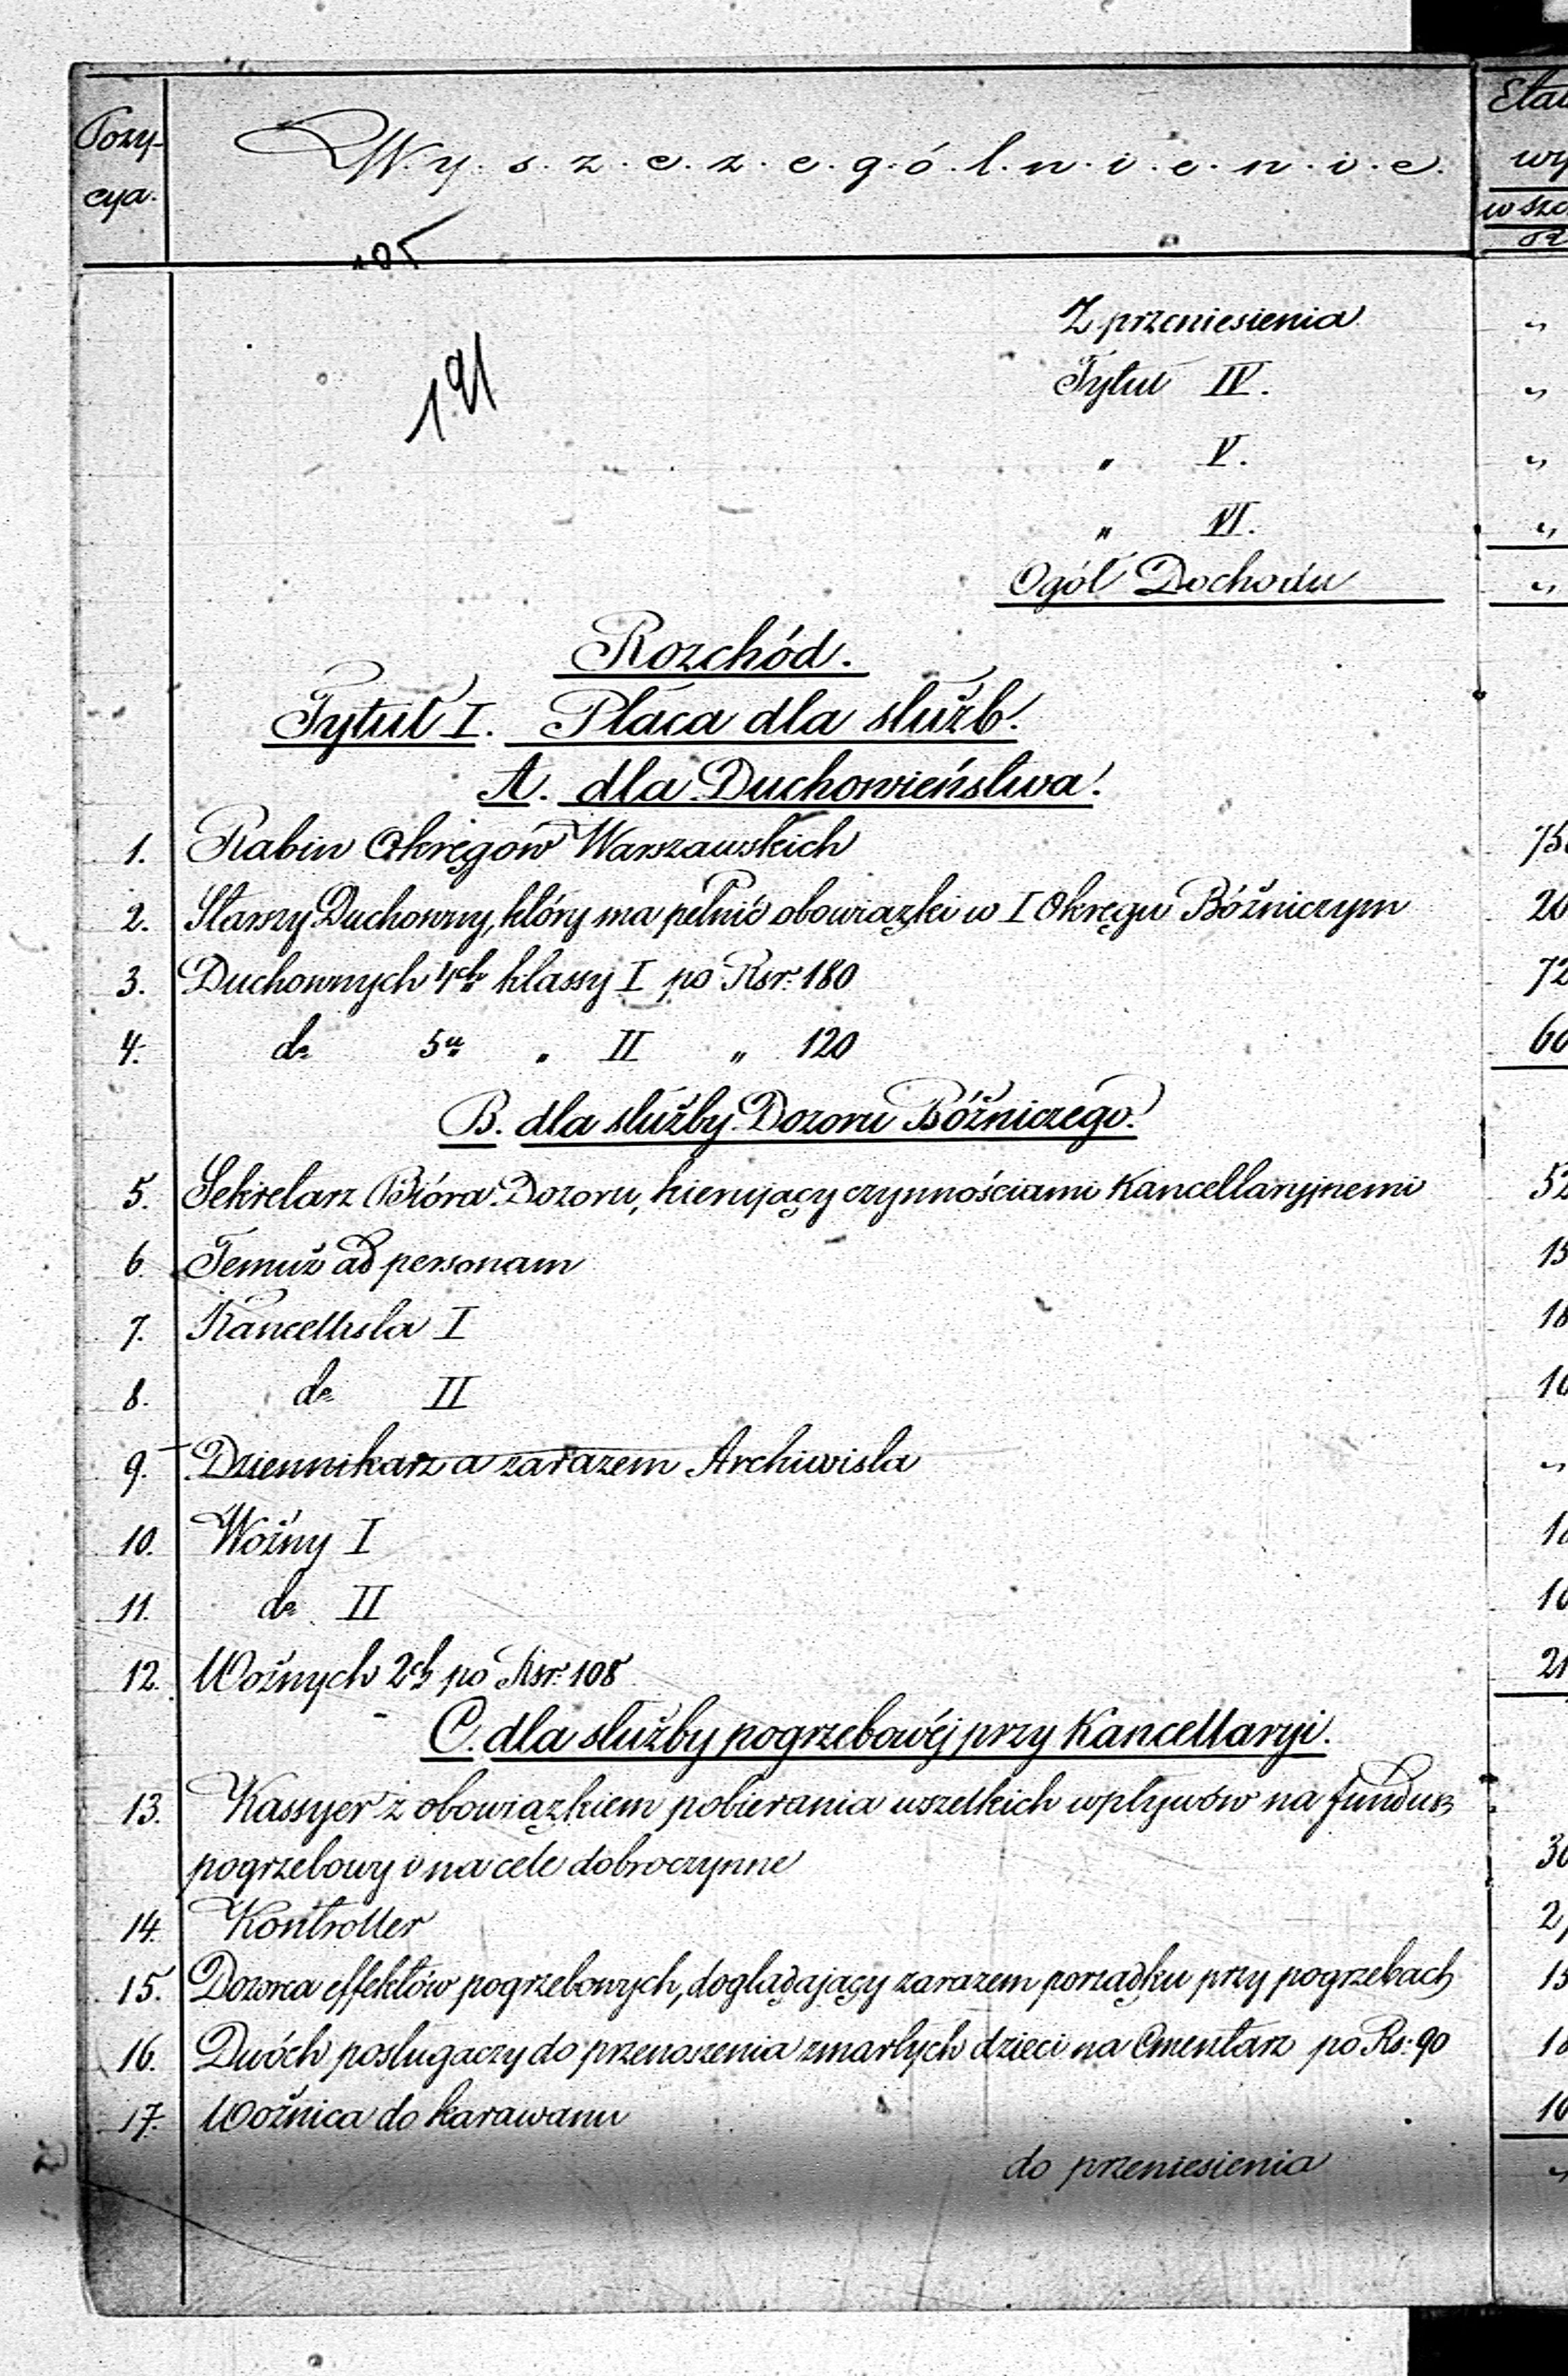 Pozy-
cya.
Wyszczególnienie.
Eta
wy
w sze
105
191
Z przeniesienia „
Tytuł IV. „
„ V. „
„ VI. „
Ogół Dochodu „
Rozchód.
Tytuł I. Płaca dla służb.
A. dla Duchowieństwa.
1. Rabin Okręgów Warszawskich 75
2. Starszy Duchowny, który ma pełnić obowiązki w I Okręgu Bóżniczym 20
3. Duchownych 4ch klassy I po Rsr. 180 72
4. do 5u „ II „ 120 60
B. dla służby Dozoru Bóżniczego.
5. Sekretarz Bióra Dozoru, kierujący czynnościami Kancellaryjnemi 52
6. Temuż ad personam 15
7. Kancellista I 18
8. do II 10
9. Dziennikarz a zarazem Archiwista „
10. Woźny I 1
11. do II 10
12. Woźnych 2ch po Rsr. 108 21
C. dla służby pogrzebowéj przy Kancellaryi.
13. Kassyer z obowiązkiem pobierania wszelkich wpływów na fundusz
pogrzebowy i na cele dobroczynne 30
14. Kontroller 2
15. Dozorca effektów pogrzebowych, doglądający zarazem porządku przy pogrzebach 15
16. Dwóch posługaczy do przenoszenia zmarłych dzieci na Cmentarz po Rs. 90 18
17. Woźnica do karawanu 10
do przeniesienia „